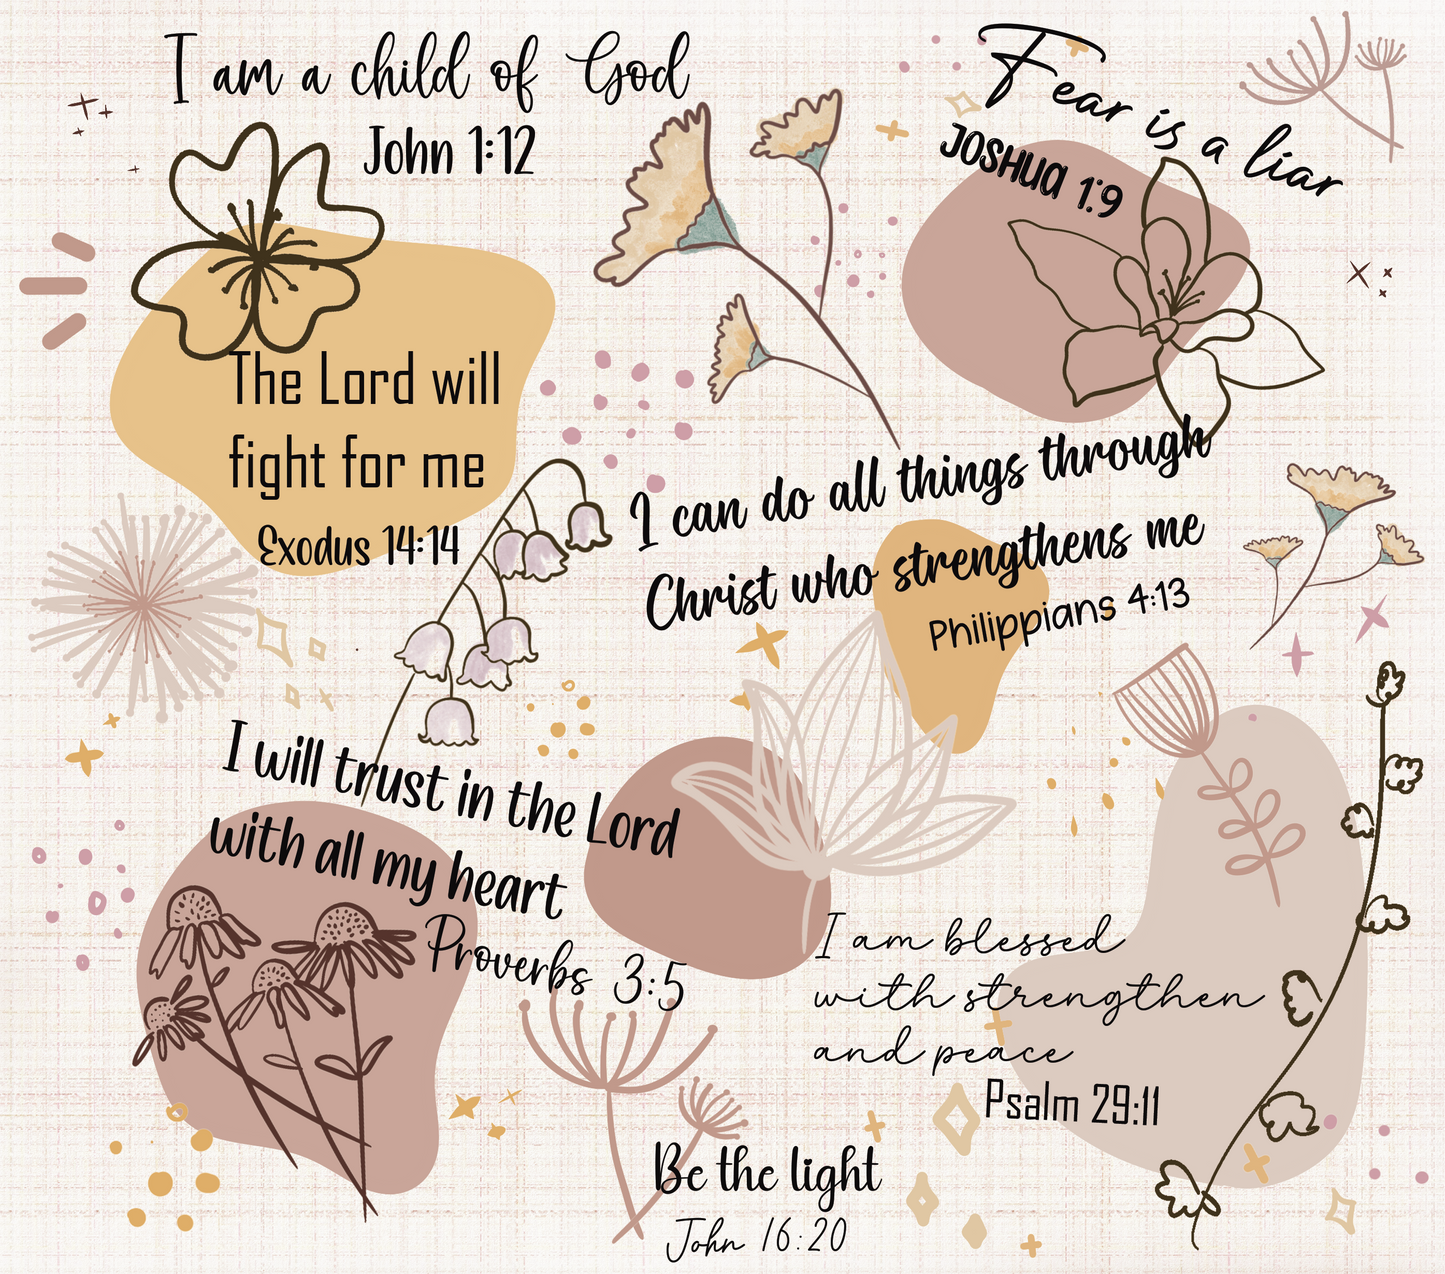 I am a child of God
John 1:12
Fear is a liar
JOSHUA 1:9
The Lord will
fight for me
Exodus 14:14
I can do all things through
Christ who strengthens me
Philippians 4:13
I will trust in the Lord
with all my heart
Proverbs 3:5
I am blessed
with strengthen
and peace
Psalm 29:11
Be the light
John 16:20